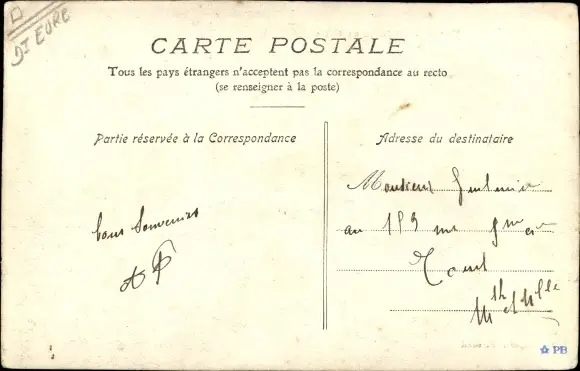 Dt EURE
CARTE POSTALE
Tous les pays étrangers n'acceptent pas la correspondance au recto
(se renseigner à la poste)
Partie réservée à la Correspondance
Adresse du destinataire
bons Souvenirs
Monsieur
au 153 me
Toul
Mthe et Mlle
PB